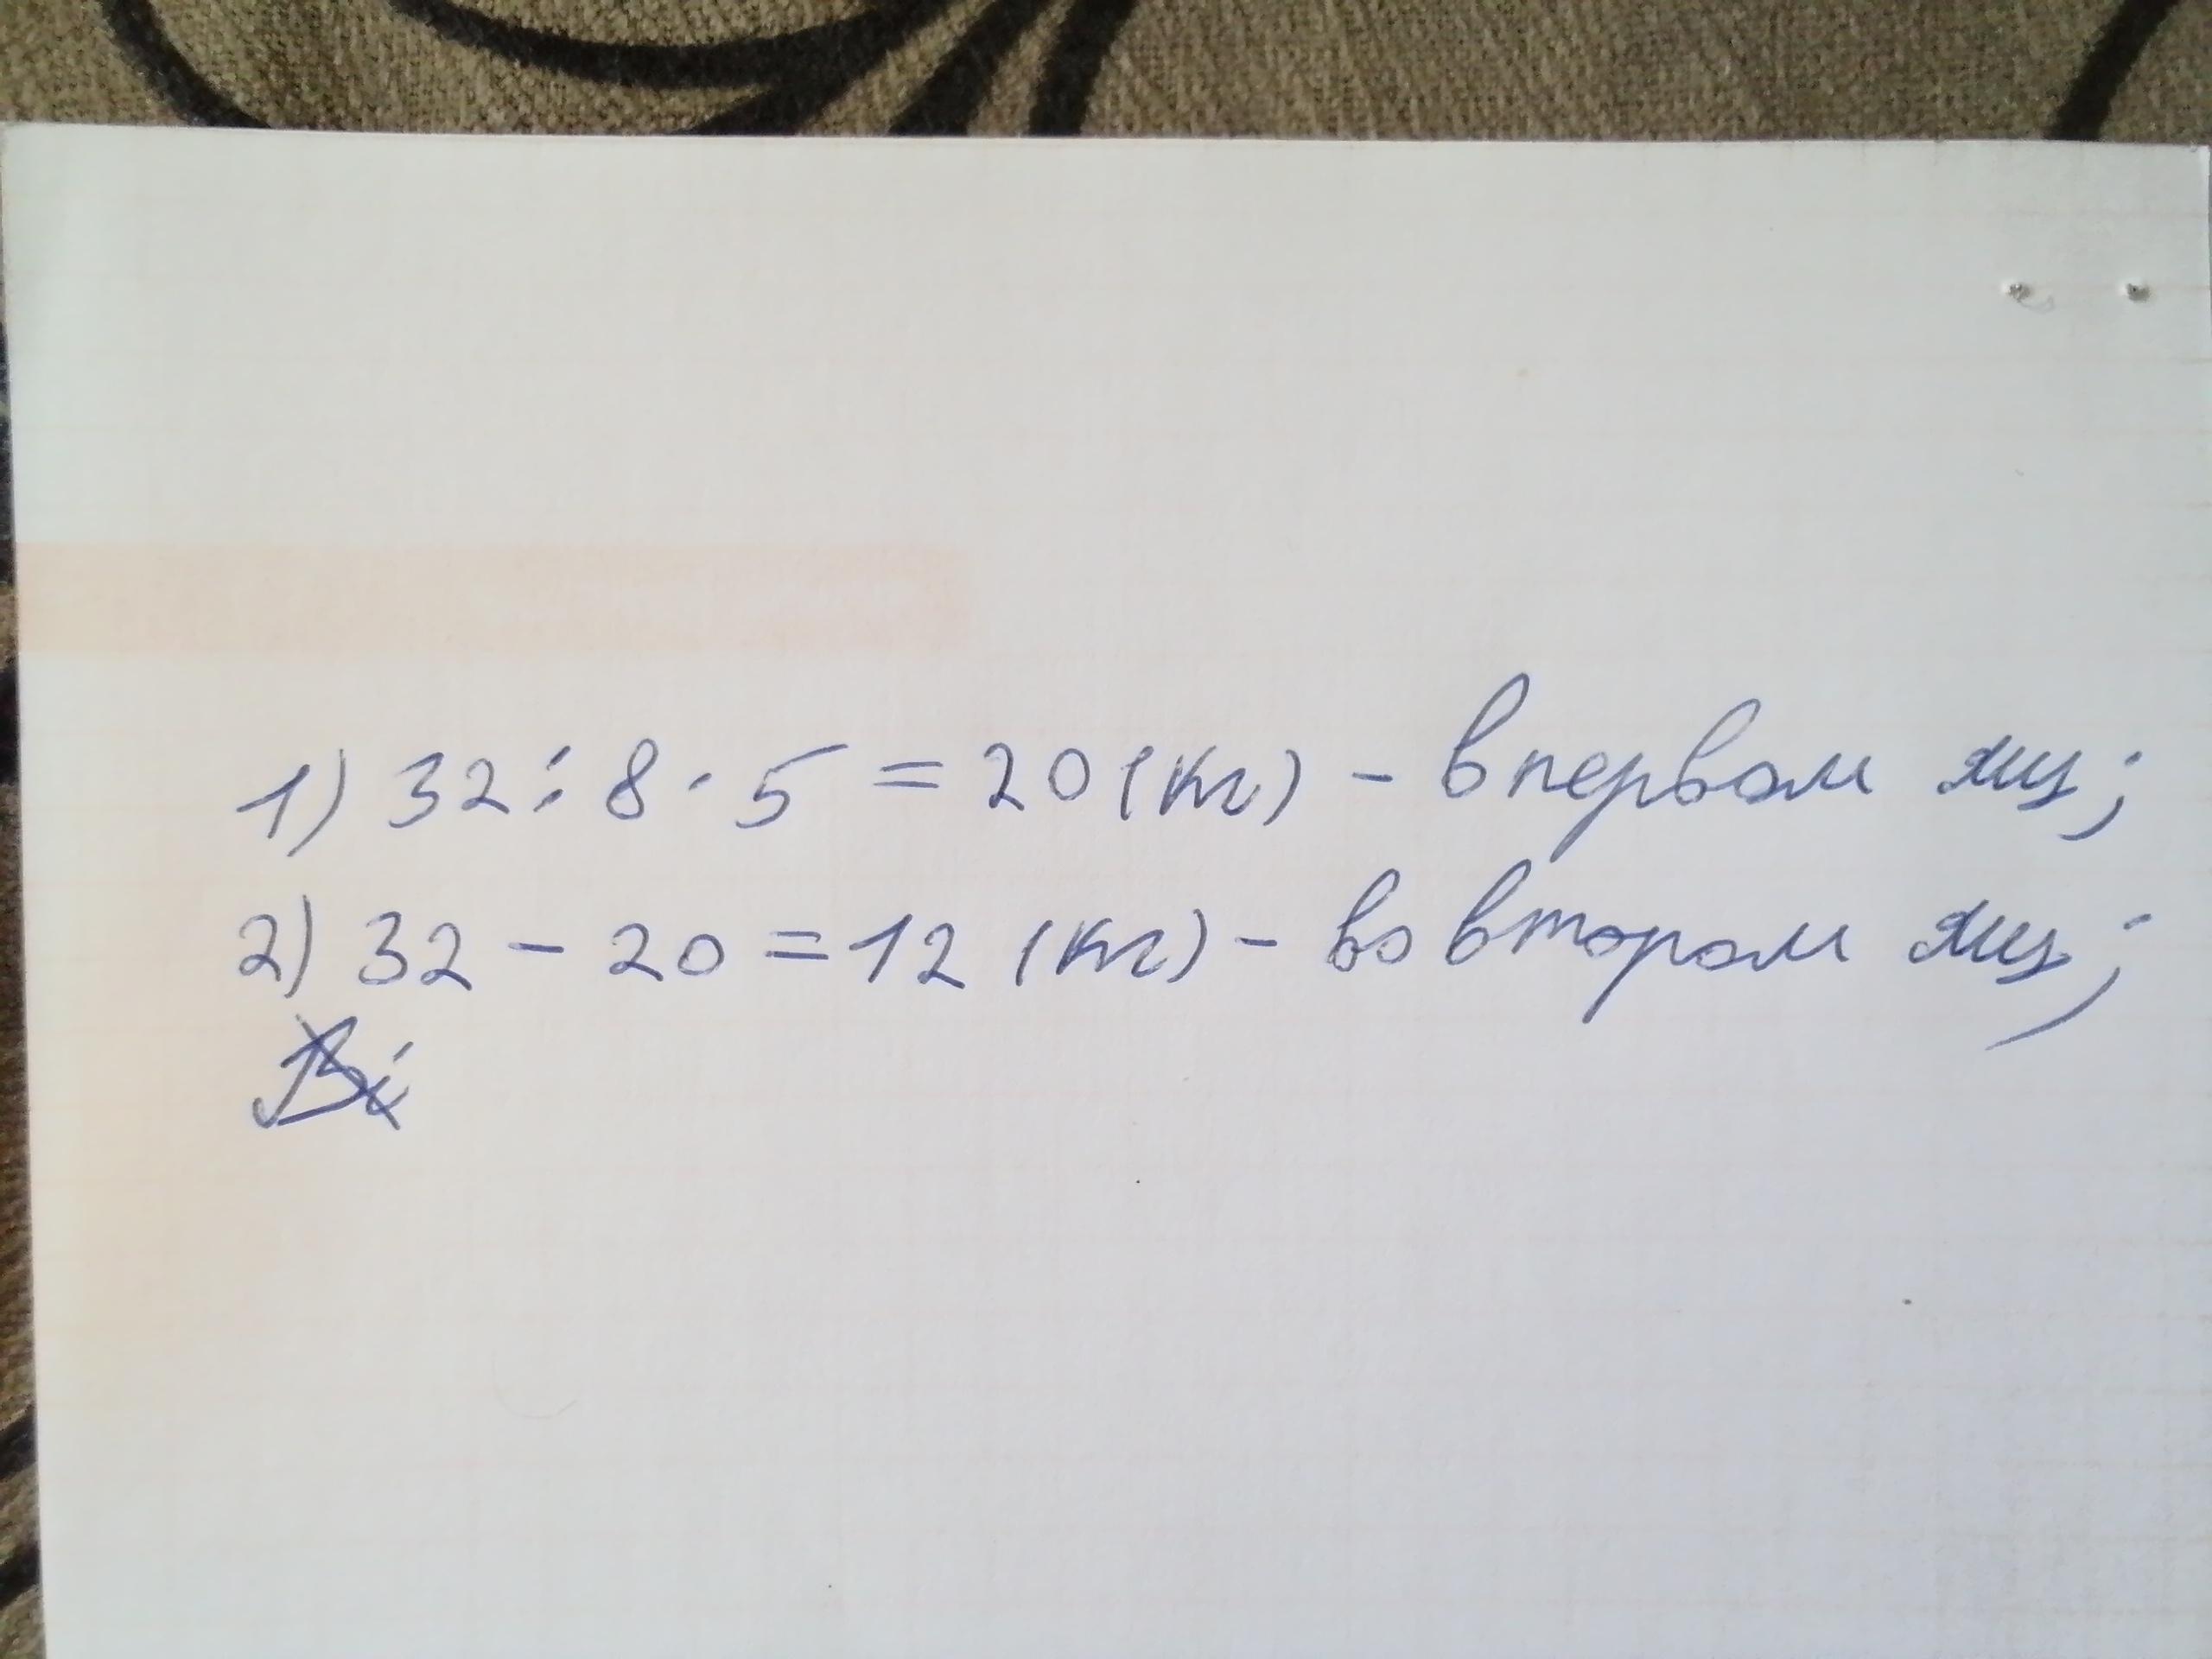 1) 32 : 8 · 5 = 20 (кг) - в первом ящ;
2) 32 - 20 = 12 (кг) - во втором ящ;